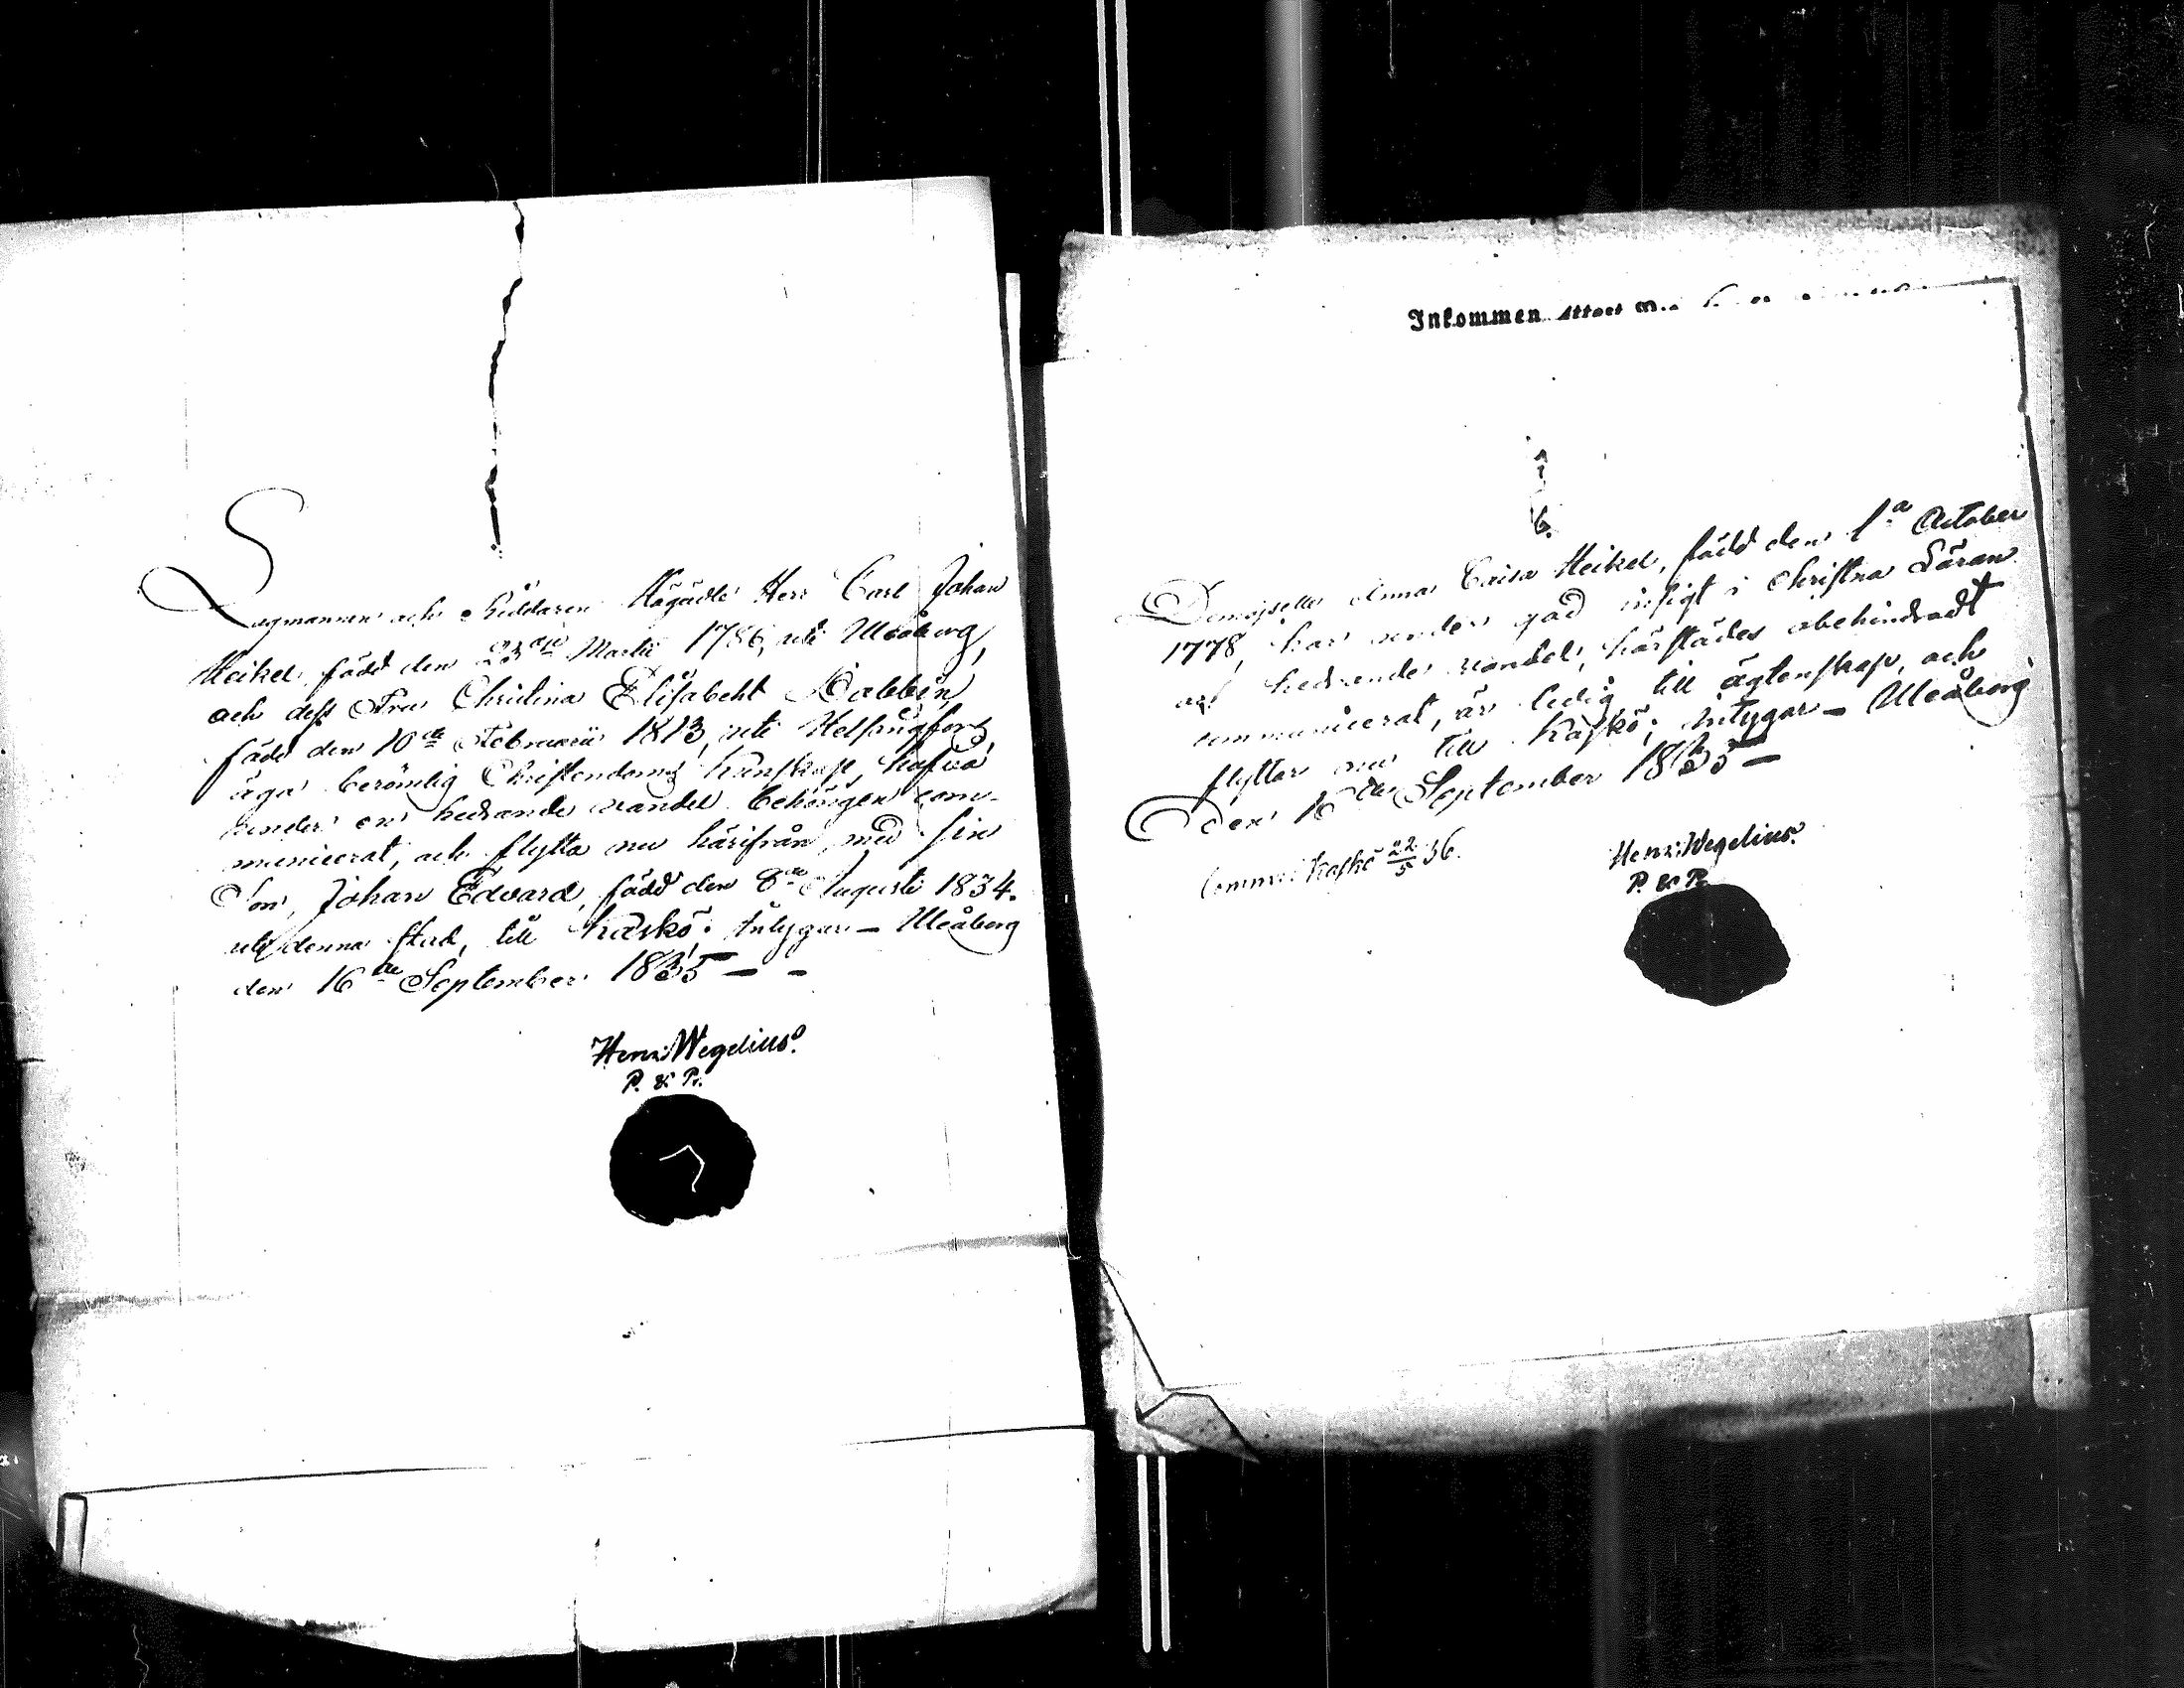 Lagmannen och Riddaren Högädle Herr Carl Johan
Heikel, född den 23die Martii 1786, uti Uleåborg,
och dess Fru Christina Elisabeht Dobbin,
född den 10de Februarii 1813, uti Helsingfors,
äga berömlig Christendoms kunskap, hafva
under en hedrande vandel behörigen com-
municerat, och flytta nu härifrån, med sin
Son, Johan Edvard, född den 8de Augusti 1834.
uti denna stad, till Kaskö; Intygar — Uleåborg
den 16de September 1835 — —
Henr: Wegelius.
P. & Pr.
Inkommen Attest
6.
Demoiselle Anna Caisa Heikel, född den 1a October
1778, har under god insigt i Christna Läran
och hedrande vandel, härstädes obehindradt
communicerat, är ledig till ägtenskap, och
flyttar nu till Kaskö; Intygar — Uleåborg
Den 16de September 1835 —
Comm: i Kaskö 22/5 36.
Henr: Wegelius.
P. & Pr.